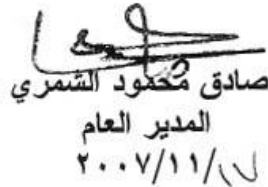 صادق محمود الشمري
المدير العام
٢٠٠٧/١١/١٧